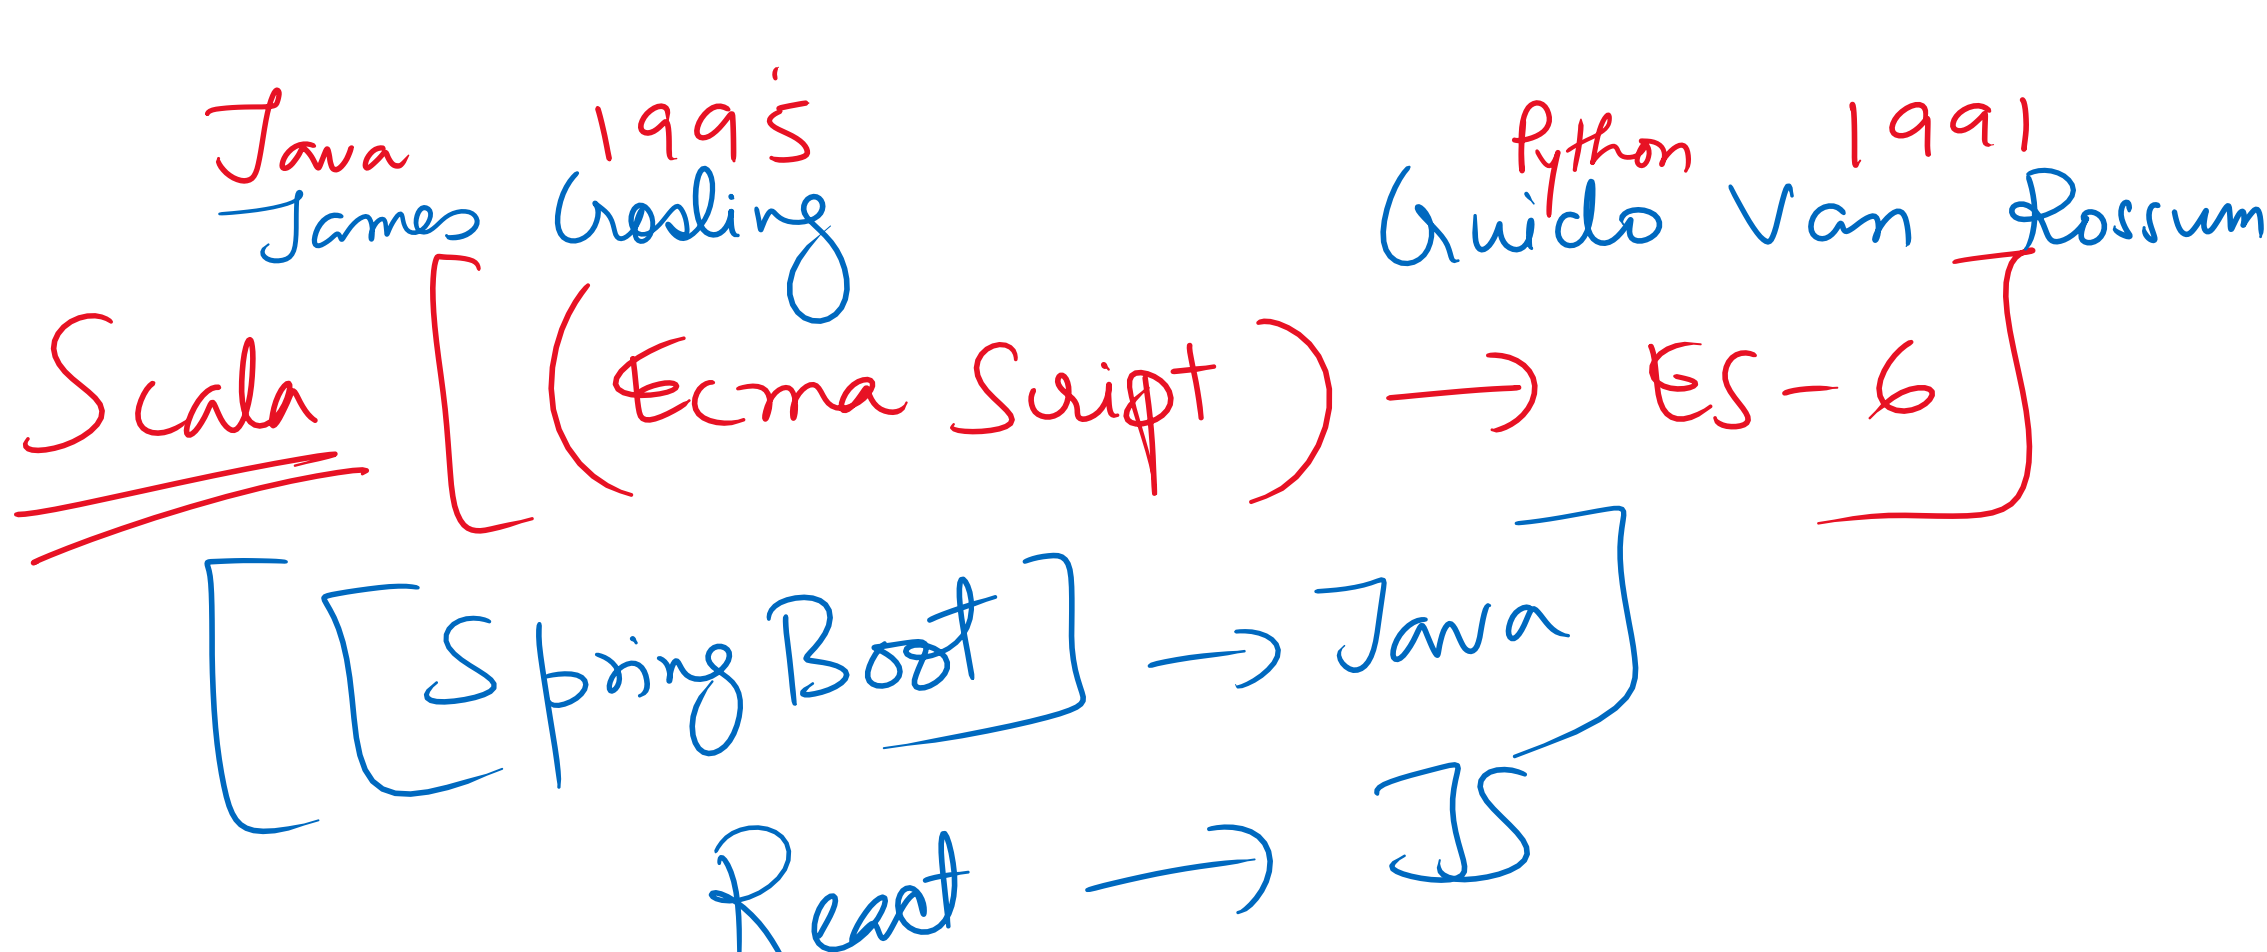 Java 1995 Python 1991
James Gosling Guido Van Rossum
Scala [ (Ecma Script) → ES-6 ]
[ [Spring Boot] → Java ]
React → JS